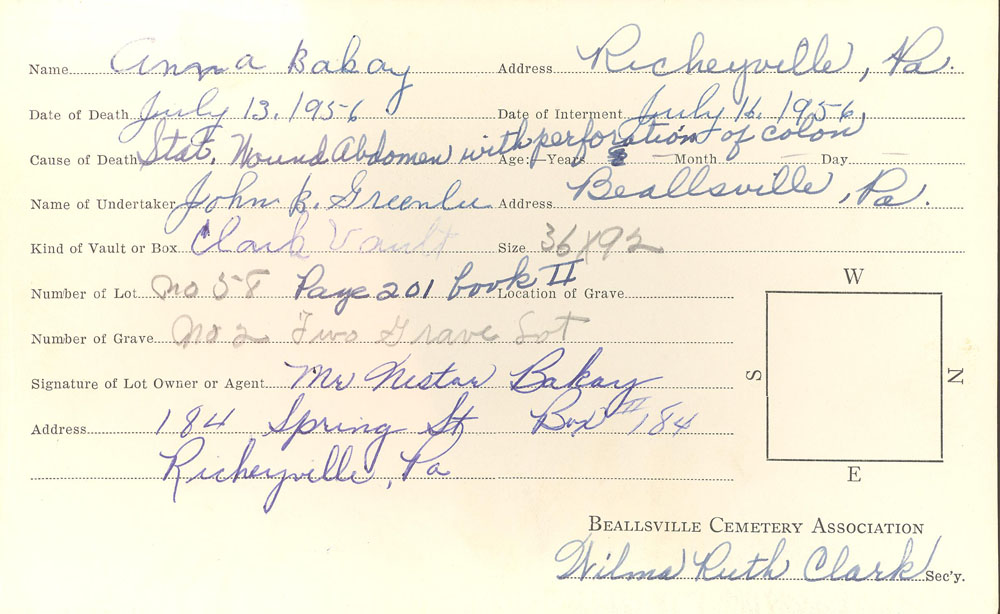 Name Anna Bakay Address Richeyville, Pa.
Date of Death July 13, 1956 Date of Interment July 16, 1956
Cause of Death Stat. Wound Abdomen with perforation of colon Age:—Years Month Day
Name of Undertaker John B. Greenlee Address Beallsville, Pa.
Kind of Vault or Box Clark Vault Size 36X92
Number of Lot No 58 Page 201 book II Location of Grave
Number of Grave No 2 Two Grave Lot
Signature of Lot Owner or Agent Mr Nestar Bakay
Address 184 Spring St Box 184
Richeyville, Pa
W
S
N
E
BEALLSVILLE CEMETERY ASSOCIATION
Wilma Ruth Clark Sec'y.